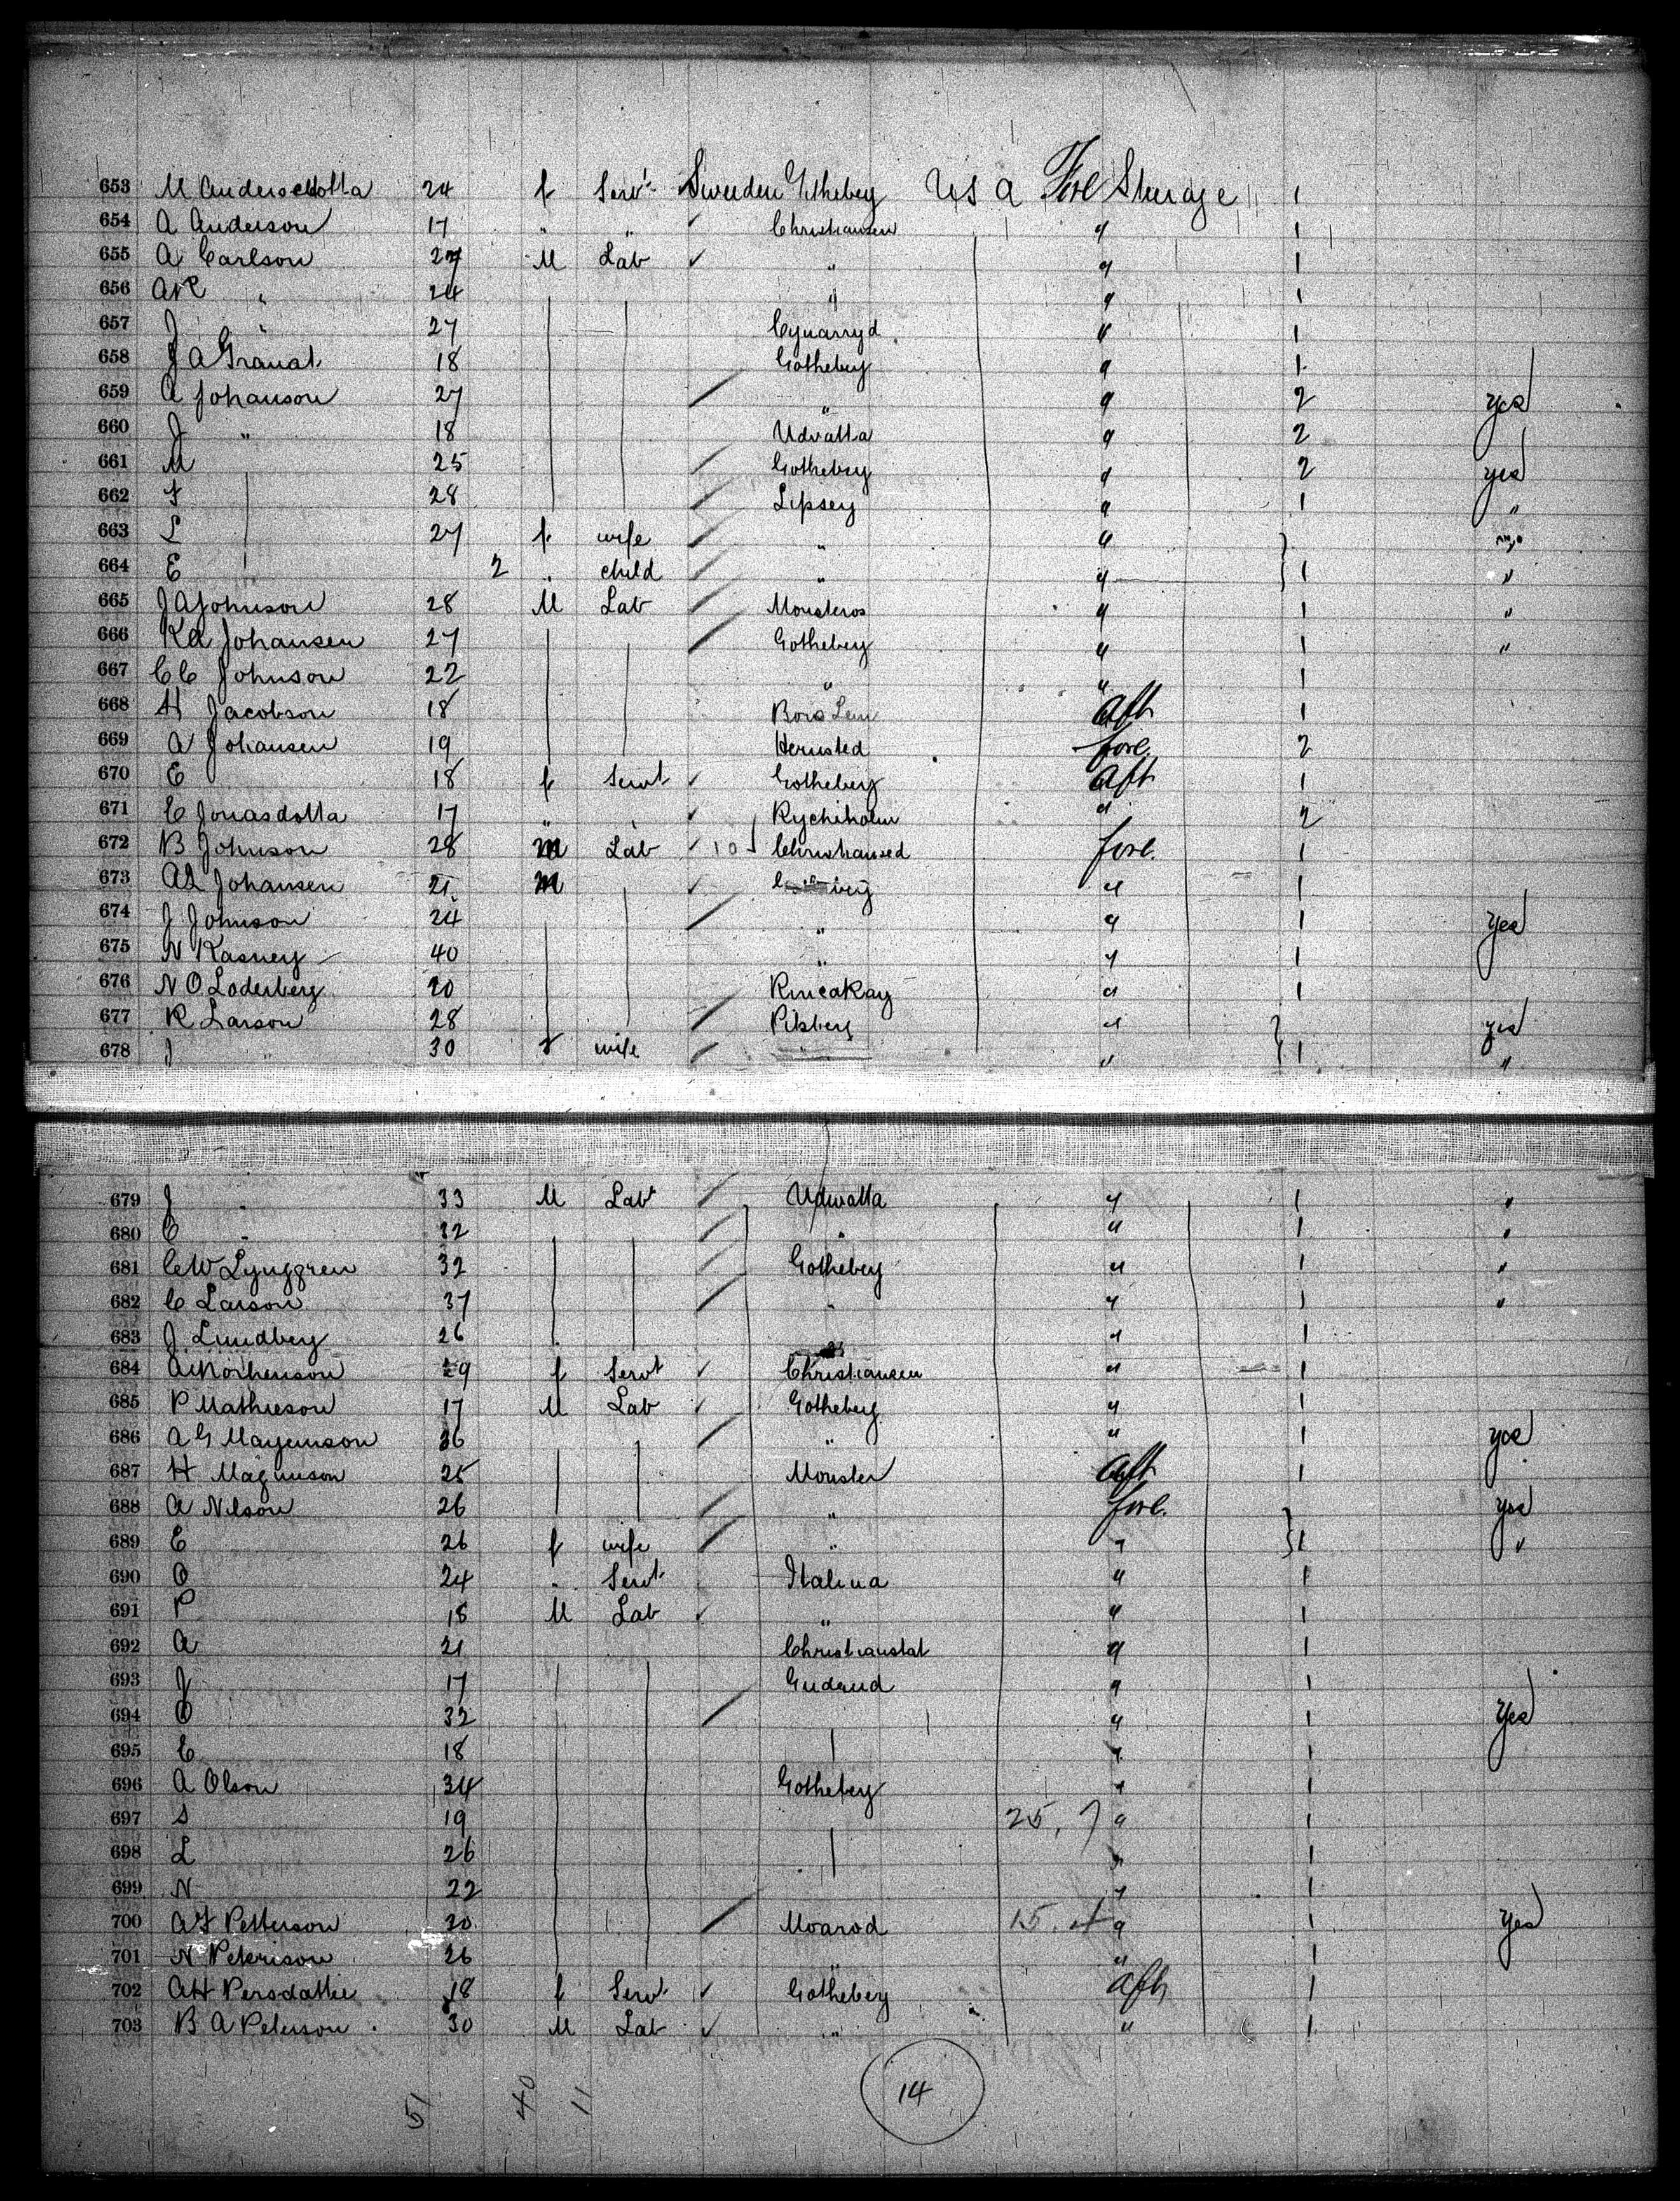 653 M Andersdotta 24 f Servt Sweden Gotheberg U S A Fore Steerage 1
654 A Anderson 17 " " Christiansen " 1
655 A Carlson 27 M Lab " " 1
656 " 24 " " 1
657 J " 27 Cynarryd " 1
658 J A Granat 18 Gotheberg " 1
659 A Johanson 27 " " 2 yes
660 J " 18 Udvalla " 2
661 M 25 Gotheberg " 2 yes
662 F 28 Lipsey " 1 "
663 L 27 f wife " "
664 E 2 " child " " 1 "
665 J A Johnson 28 M Lab Monsteros " 1 "
666 K A Johansen 27 Gotheberg " 1 "
667 C C Johnson 22 " " 1
668 H Jacobson 18 Bora Aft 1
669 A Johansen 19 Hernsted fore. 2
670 E 18 f Servt Gotheberg Aft 1
671 C Jonasdotta 17 " " Rychiholm " 2
672 B Johnson 28 M Lab 10 Christiansed fore. 1
673 A L Johansen 21 M " 1
674 J Johnson 24 " " 1 yes
675 N Kasney 40 " " 1
676 N O Loderberg 20 Rincakay " 1
677 K Larson 28 Pilsberg " yes
678 J " 30 f wife " " 1 "
679 J " 33 M Lab Udwalla " 1 "
680 C " 32 " " 1 "
681 C W Lynggren 32 Gotheberg " 1 "
682 C Larson 37 " " 1 "
683 J Lundberg 26 " 1
684 29 f Servt Christiansen " 1
685 P Mathieson 17 M Lab Gotheberg " 1
686 A G Mayenson 36 " " 1 yes
687 H Magnuson 25 Monster Aft 1
688 A Nilson 26 " fore. yes
689 E 26 f wife " " 1 "
690 O 24 " Servt Italina " 1
691 P 18 M Lab " " 1
692 A 21 Christianstat " 1
693 J 17 Gudend " 1
694 O 32 " 1 Yes
695 C 18 " 1
696 A Olson 34 Gotheberg " 1
697 S 19 25, 7 " 1
698 L 26 " 1
699 N 22 " 1
700 A F Petterson 20 Moarod 15. 4 " 1 Yes
701 N Peterison 26 " " 1
702 A H Persdattie 18 f Servt Gotheberg Aft 1
703 B A Peterson 30 M Lab " " 1
51 40 11 14